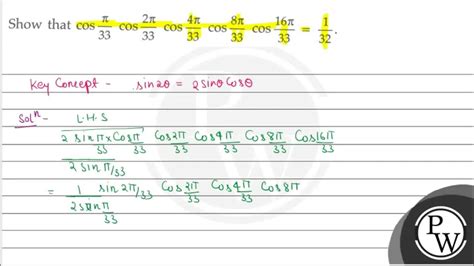 Show that cos π/33 cos 2π/33 cos 4π/33 cos 8π/33 cos 16π/33 = 1/32.
Key Concept - sin2θ = 2sinθcosθ
Solⁿ - L.H.S
2 sin π/33 × cos π/33 cos 2π/33 cos 4π/33 cos 8π/33 cos 16π/33
2 sin π/33
= 1/(2 sin π/33) sin 2π/33 cos 2π/33 cos 4π/33 cos 8π
P
W